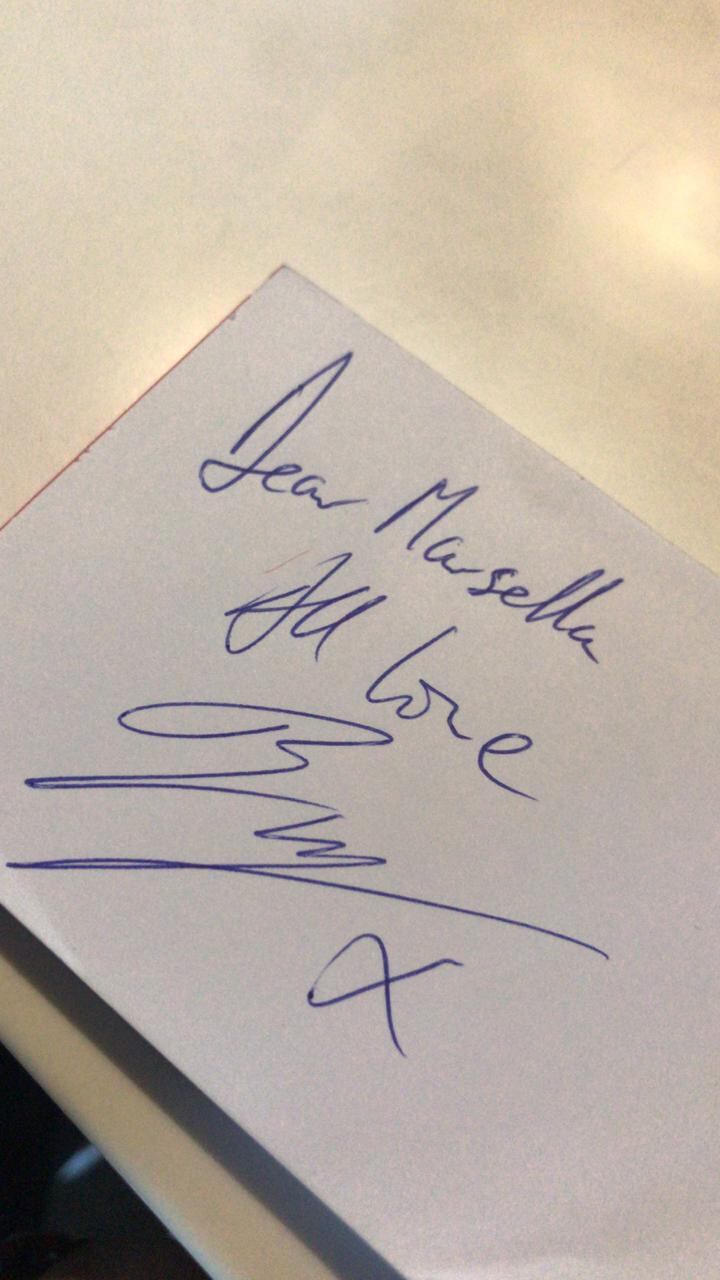 Dear Marsella
All Love
X